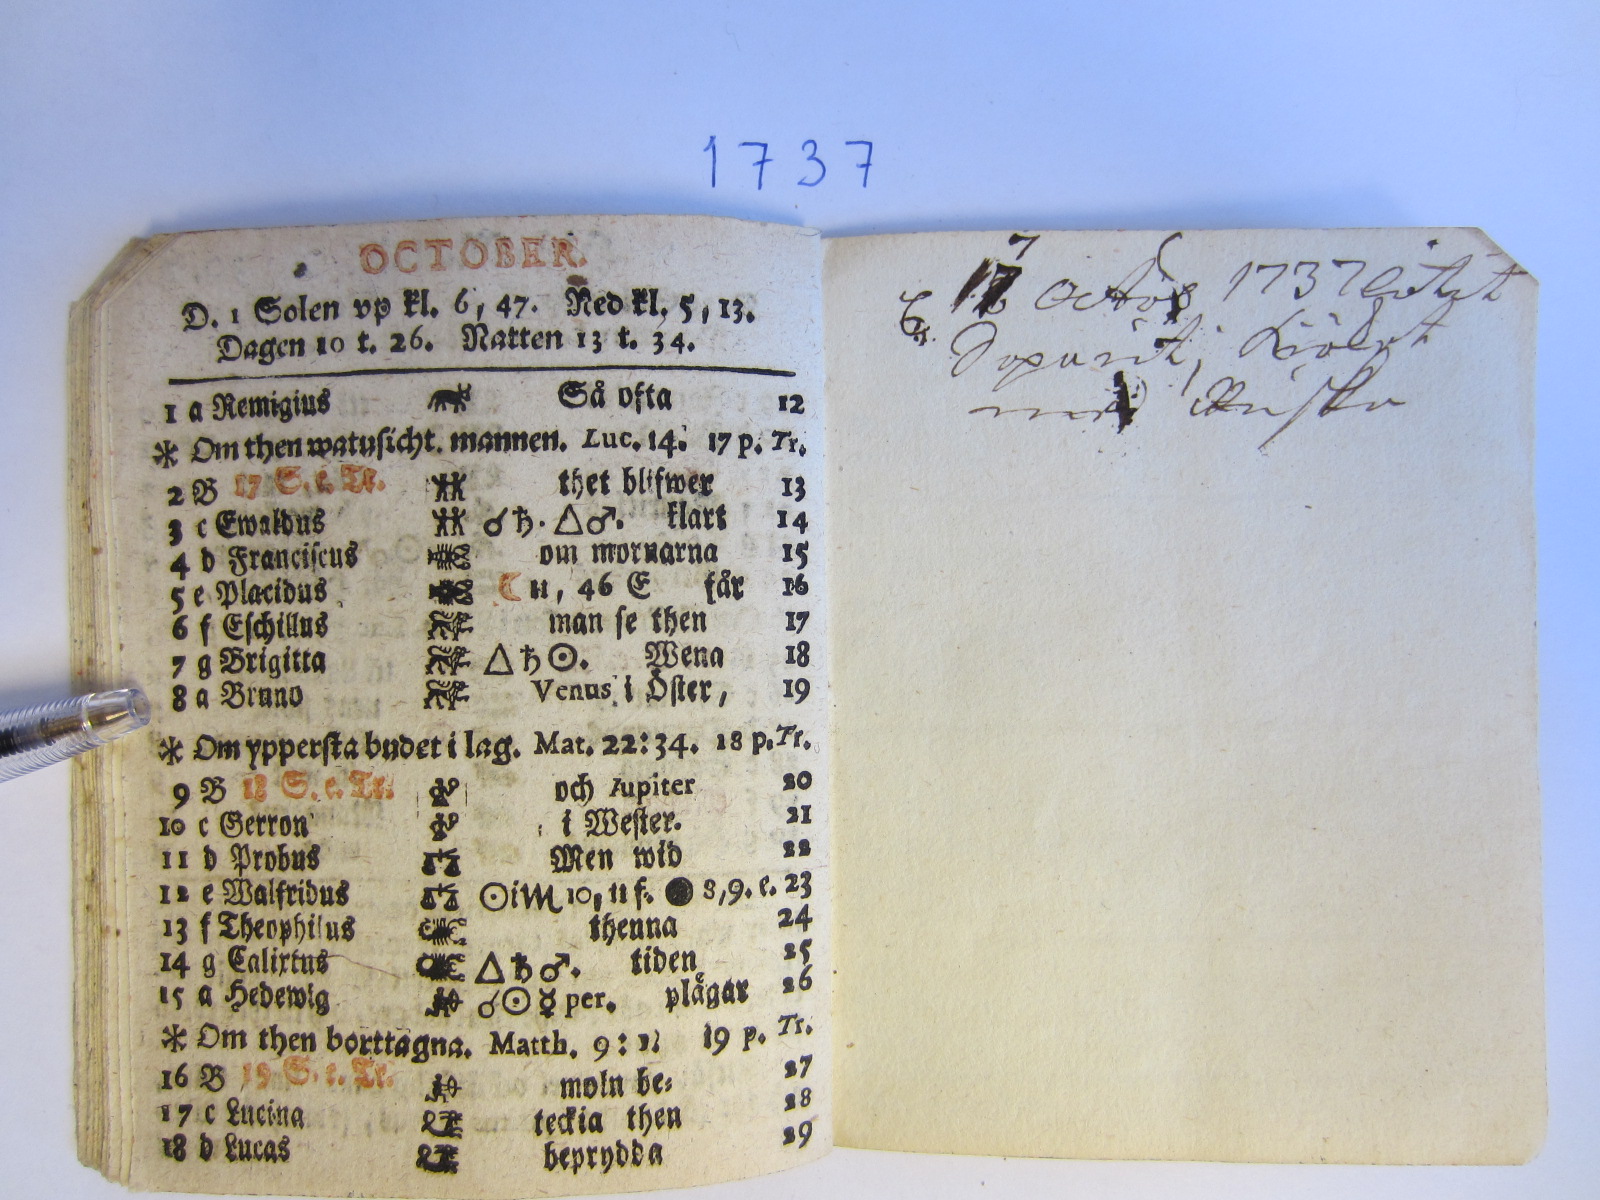 1737
OCTOBER.
D. 1 Solen vp kl. 6, 47. Ned kl. 5, 13.
Dagen 10 t. 26. Natten 13 t. 34.
1 a Remigius Så ofta 12
* Om then watusicht. mannen. Luc. 14. 17 p. Tr.
2 B 17 S. e. Tr. thet blifwer 13
3 c Ewaldus ☌ ♄. △ ♂. klart 14
4 d Franciscus om mornarna 15
5 e Placidus ☾ 11, 46 E får 16
6 f Eschillus man se then 17
7 g Brigitta △ ♄ ☉. Wena 18
8 a Bruno Venus i Öster, 19
* Om yppersta budet i lag. Mat. 22:34. 18 p. Tr.
9 B 18 S. e. Tr. och Jupiter 20
10 c Gerron i Wester. 21
11 d Probus Men wid 22
12 e Walfridus ☉ i ♏ 10, 11 f. ● 8, 9. e. 23
13 f Theophilus thenna 24
14 g Calixtus △ ♄ ♂. tiden 25
15 a Hedewig ☌ ☉ ☿ per. plågar 26
* Om then borttagna. Matth. 9: 1. 19 p. Tr.
16 B 19 S. e. Tr. moln be⸗
17 c Lucina teckia then 28
18 d Lucas beprydda 29
27
17 Octob 1737